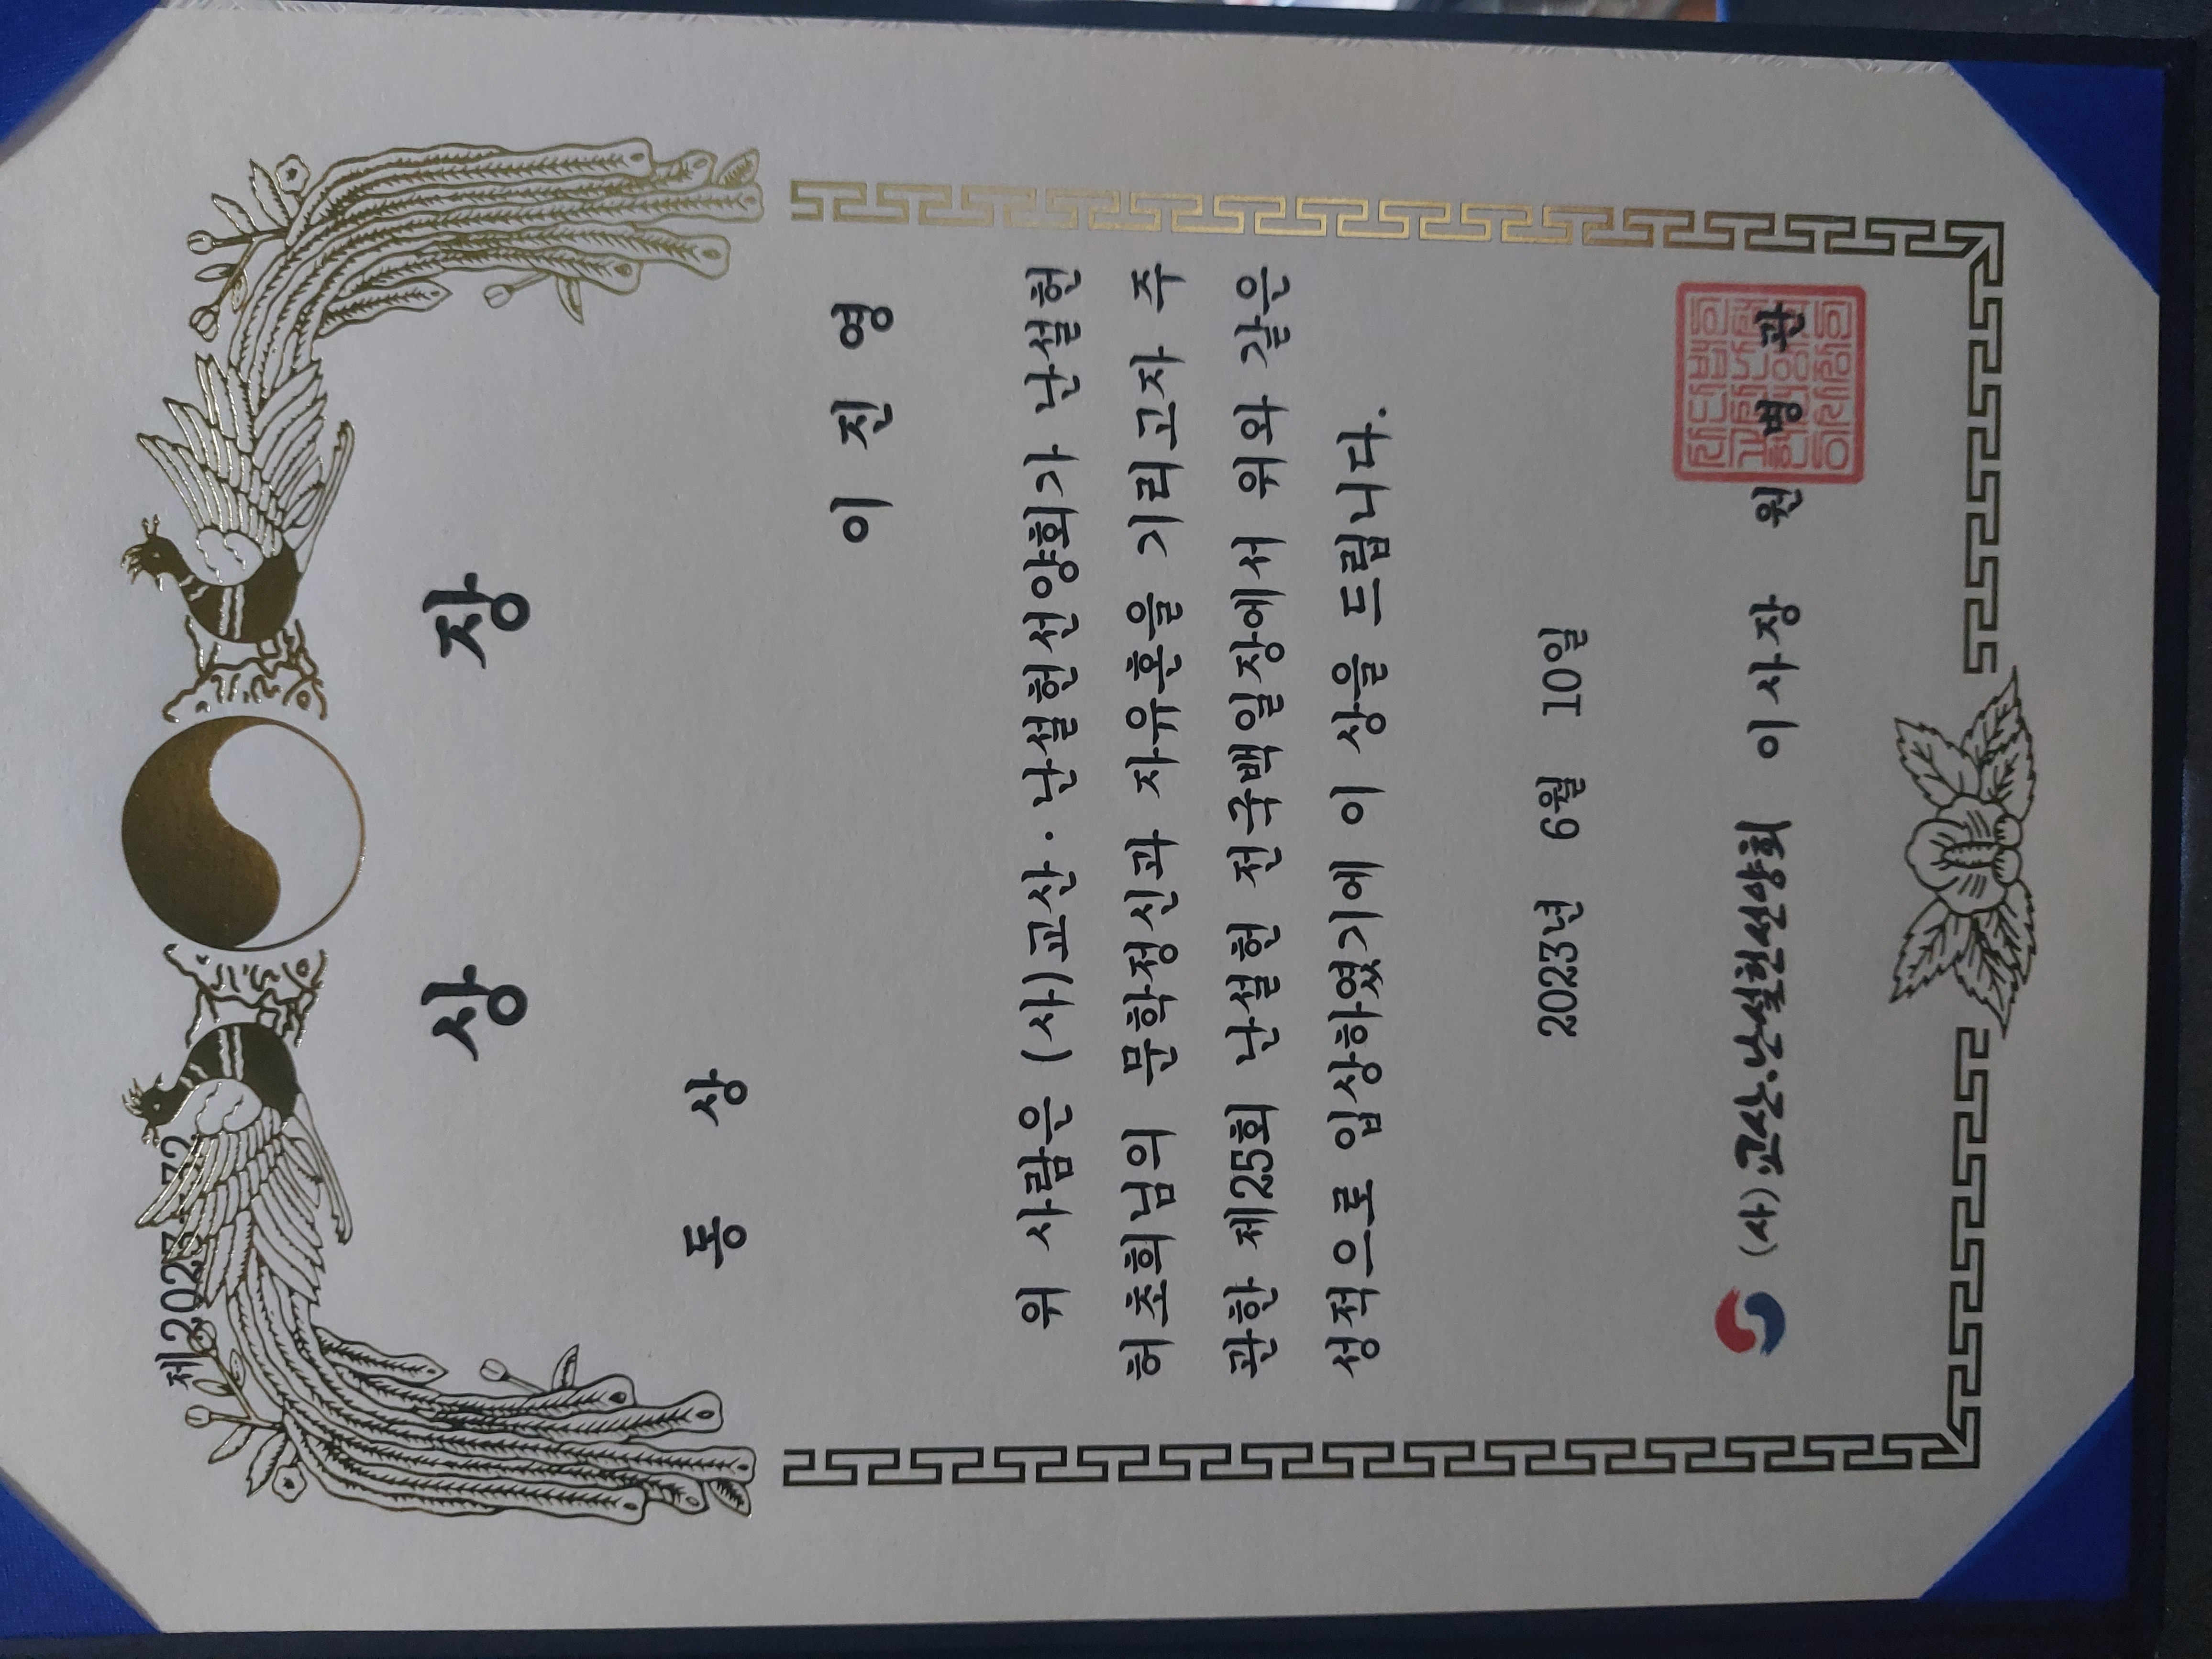 제2023-
상 장
동 상
이 진 영
위 사람은 (사)교산·난설헌선양회가 난설헌
허초희님의 문학정신과 자유혼을 기리고자 주
관한 제25회 난설헌 전국백일장에서 위와 같은
성적으로 입상하였기에 이 상을 드립니다.
2023년 6월 10일
(사)교산·난설헌선양회 이사장 원 병 관